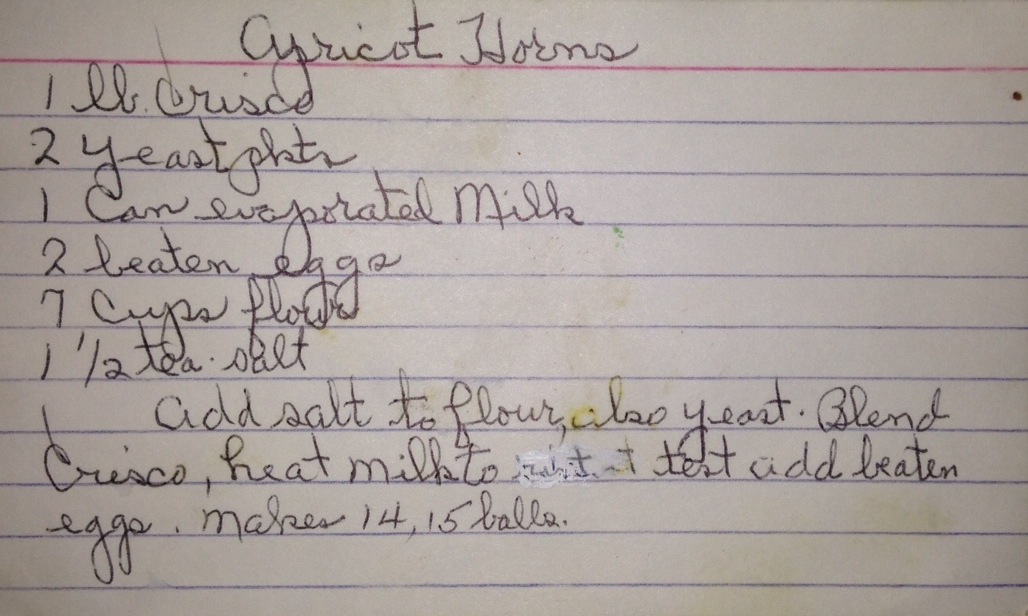 Apricot Horns
1 lb. Crisco
2 yeast pkts
1 Can evaporated Milk
2 beaten eggs
7 Cups flour
1 1/2 tea. salt
Add salt to flour, also yeast. Blend
Crisco, heat milk to test add beaten
eggs. Makes 14, 15 balls.